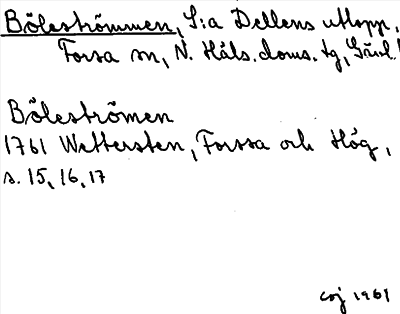 Böleströmmen, S:a Dellens utlopp.
Forsa sn, N. Häls. doms. tg, Gävl.
Böleströmen
1761 Wettersten, Forssa och Hög,
s. 15, 16, 17
coj 1961